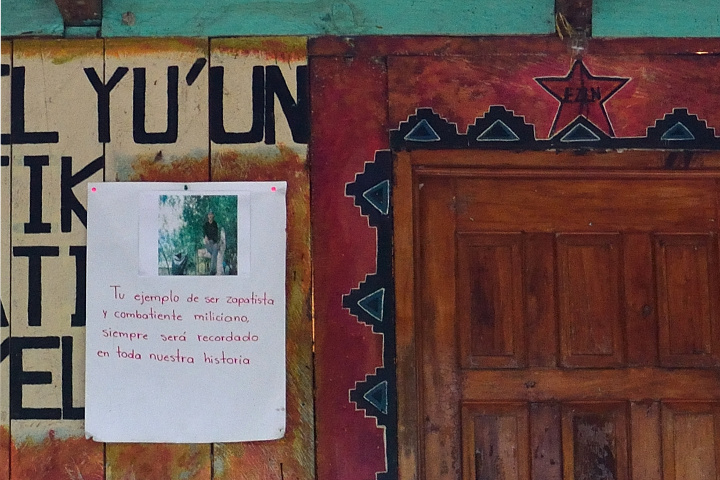 L YU'UN
EZLN
TIK
ATI
YEL
Tu ejemplo de ser zapatista
y combatiente miliciano,
siempre será recordado
en toda nuestra historia